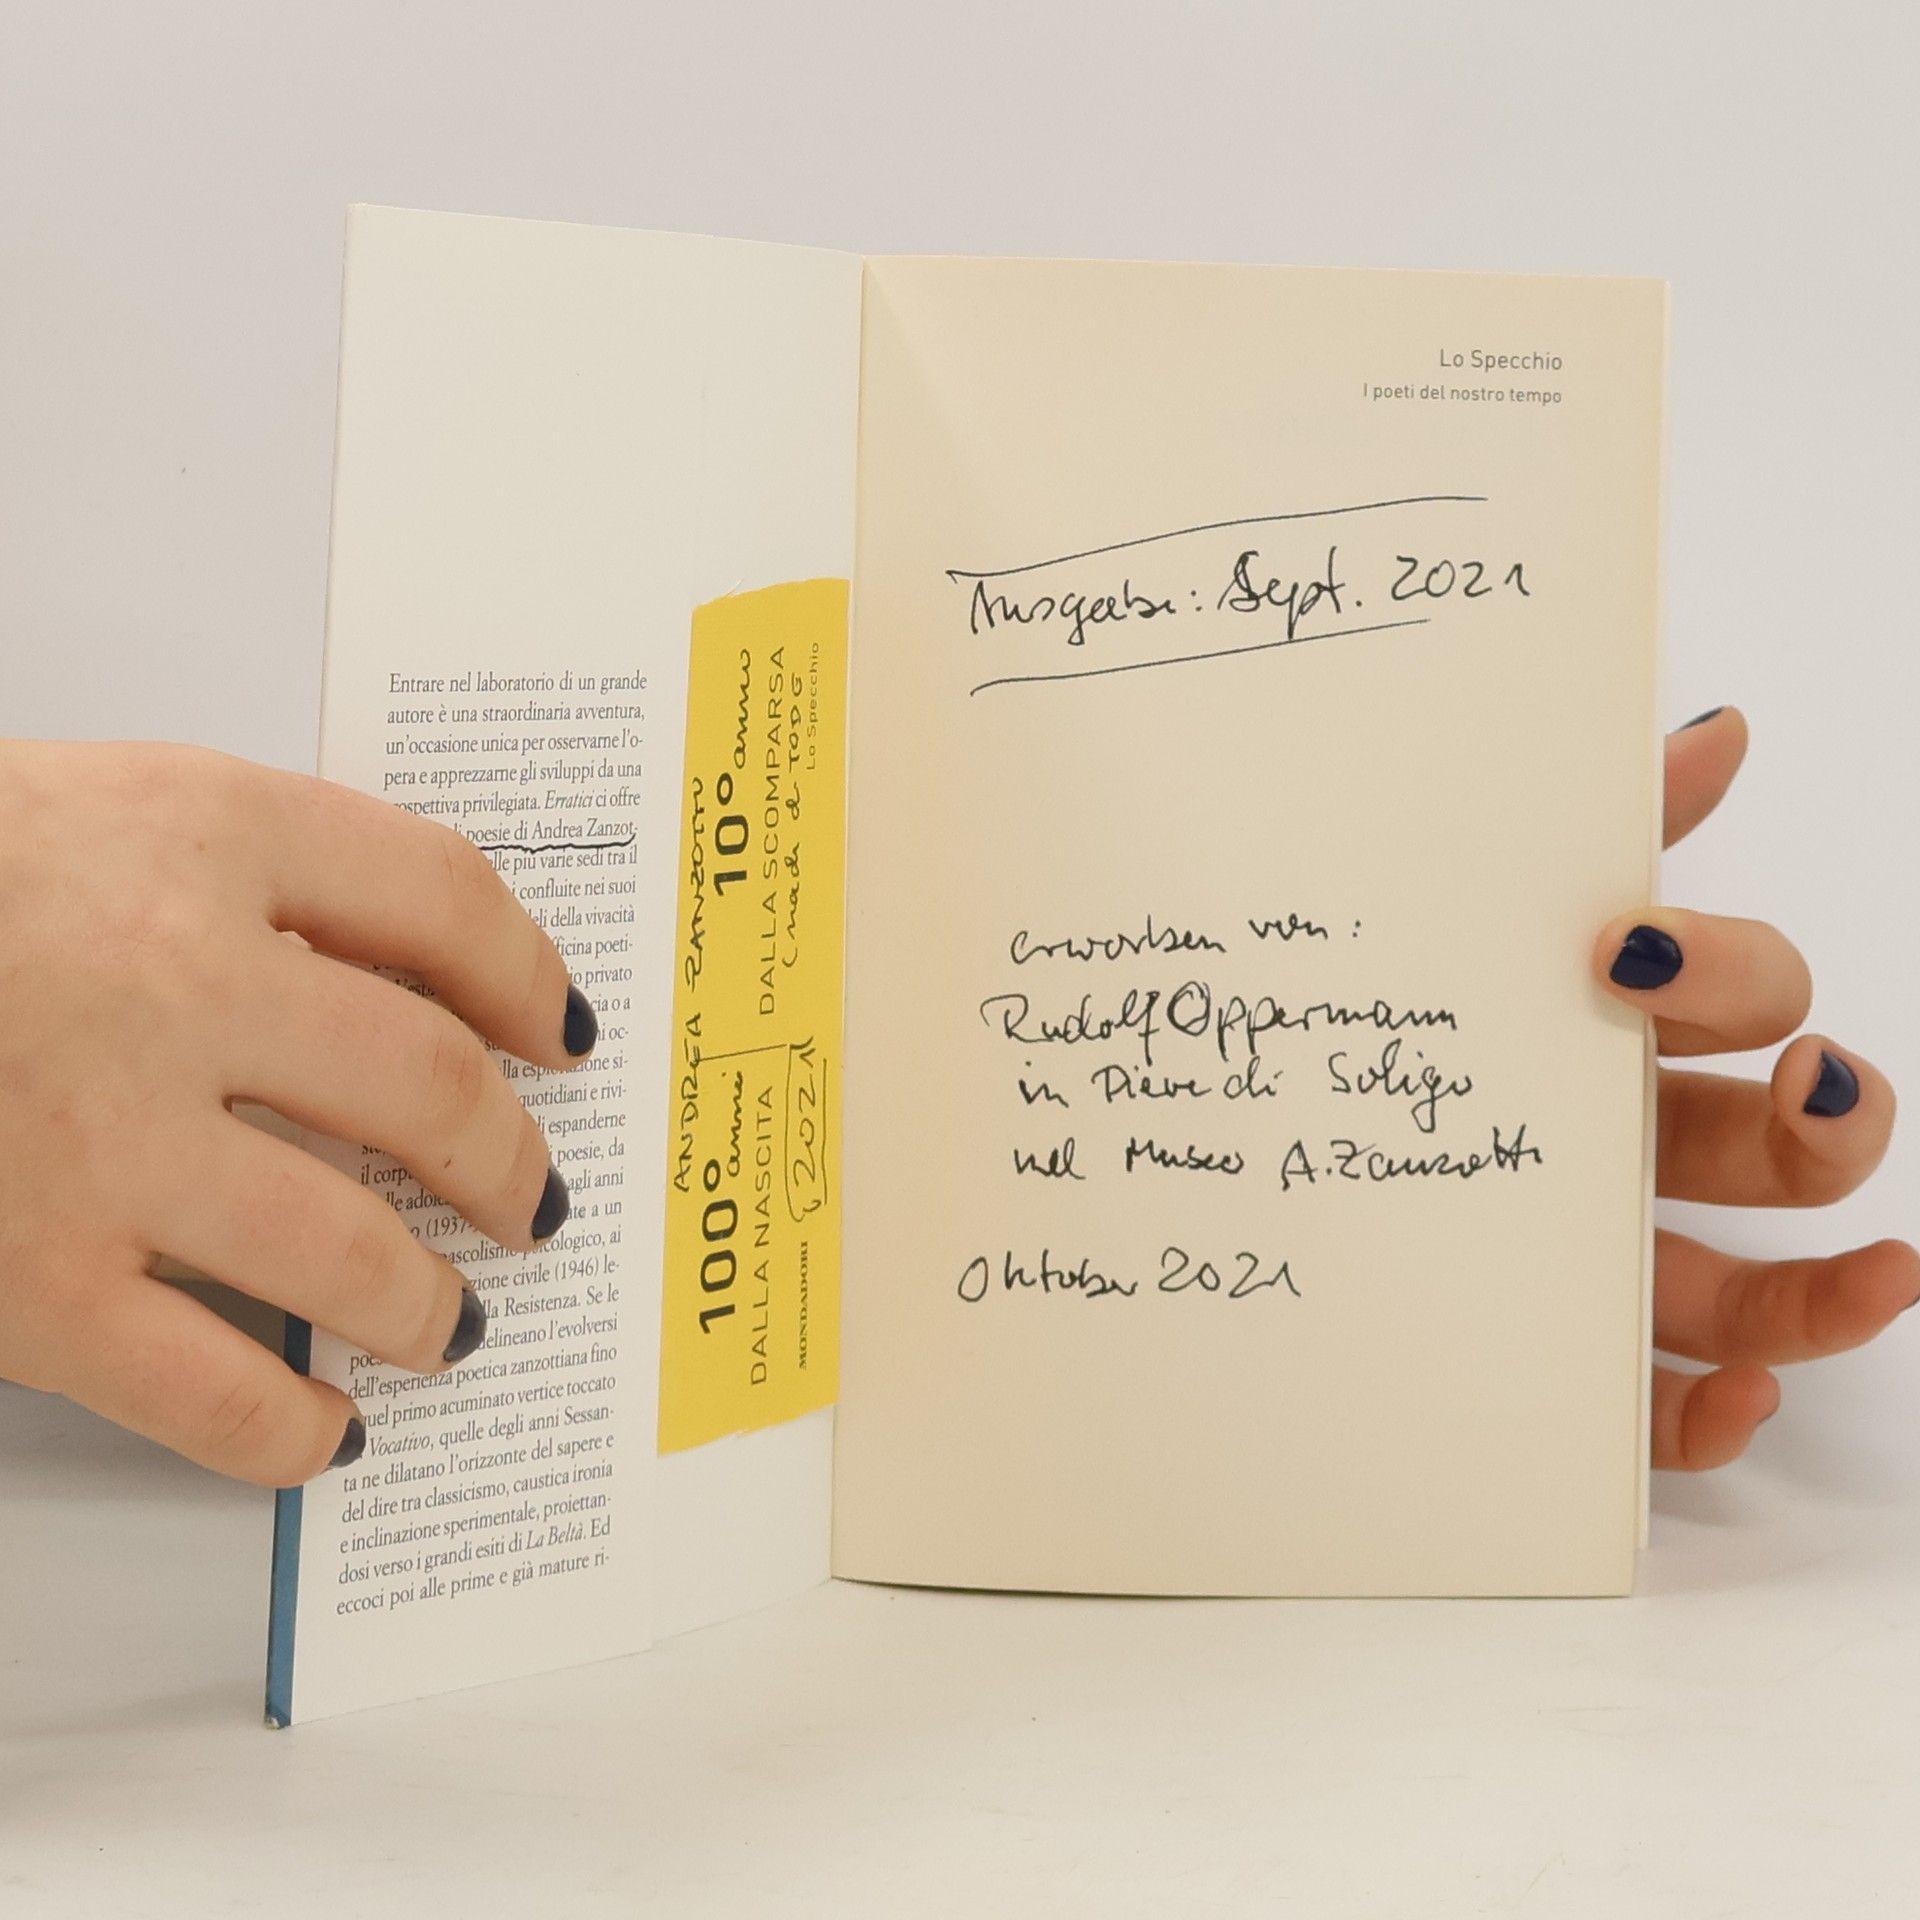 Entrare nel laboratorio di un grande
autore è una straordinaria avventura,
un'occasione unica per osservarne l'o-
pera e apprezzarne gli sviluppi da una
prospettiva privilegiata. Erratici ci offre
poesie di Andrea Zanzot-
più varie sedi tra il
confluite nei suoi
della vivacità
poeti-
privato
o a
oc-
si-
quotidiani e rivi-
di espanderne
poesie, da
il agli anni
a un
ai
civile (1946) le-
Resistenza. Se le
delineano l'evolversi
dell'esperienza poetica zanzottiana fino
quel primo acuminato vertice toccato
Vocativo, quelle degli anni Sessan-
ta ne dilatano l'orizzonte del sapere e
del dire tra classicismo, caustica ironia
e inclinazione sperimentale, proiettan-
dosi verso i grandi esiti di La Beltà. Ed
eccoci poi alle prime e già mature ri-
ANDREA ZANZOTTO
100° anni
DALLA NASCITA
2021
MONDADORI
10° anno
DALLA SCOMPARSA
Lo Specchio
Lo Specchio
I poeti del nostro tempo
Ausgabe: Sept. 2021
erworben von:
Rudolf Oppermann
in Pieve di Soligo
nel Museo A. Zanzotti
Oktober 2021